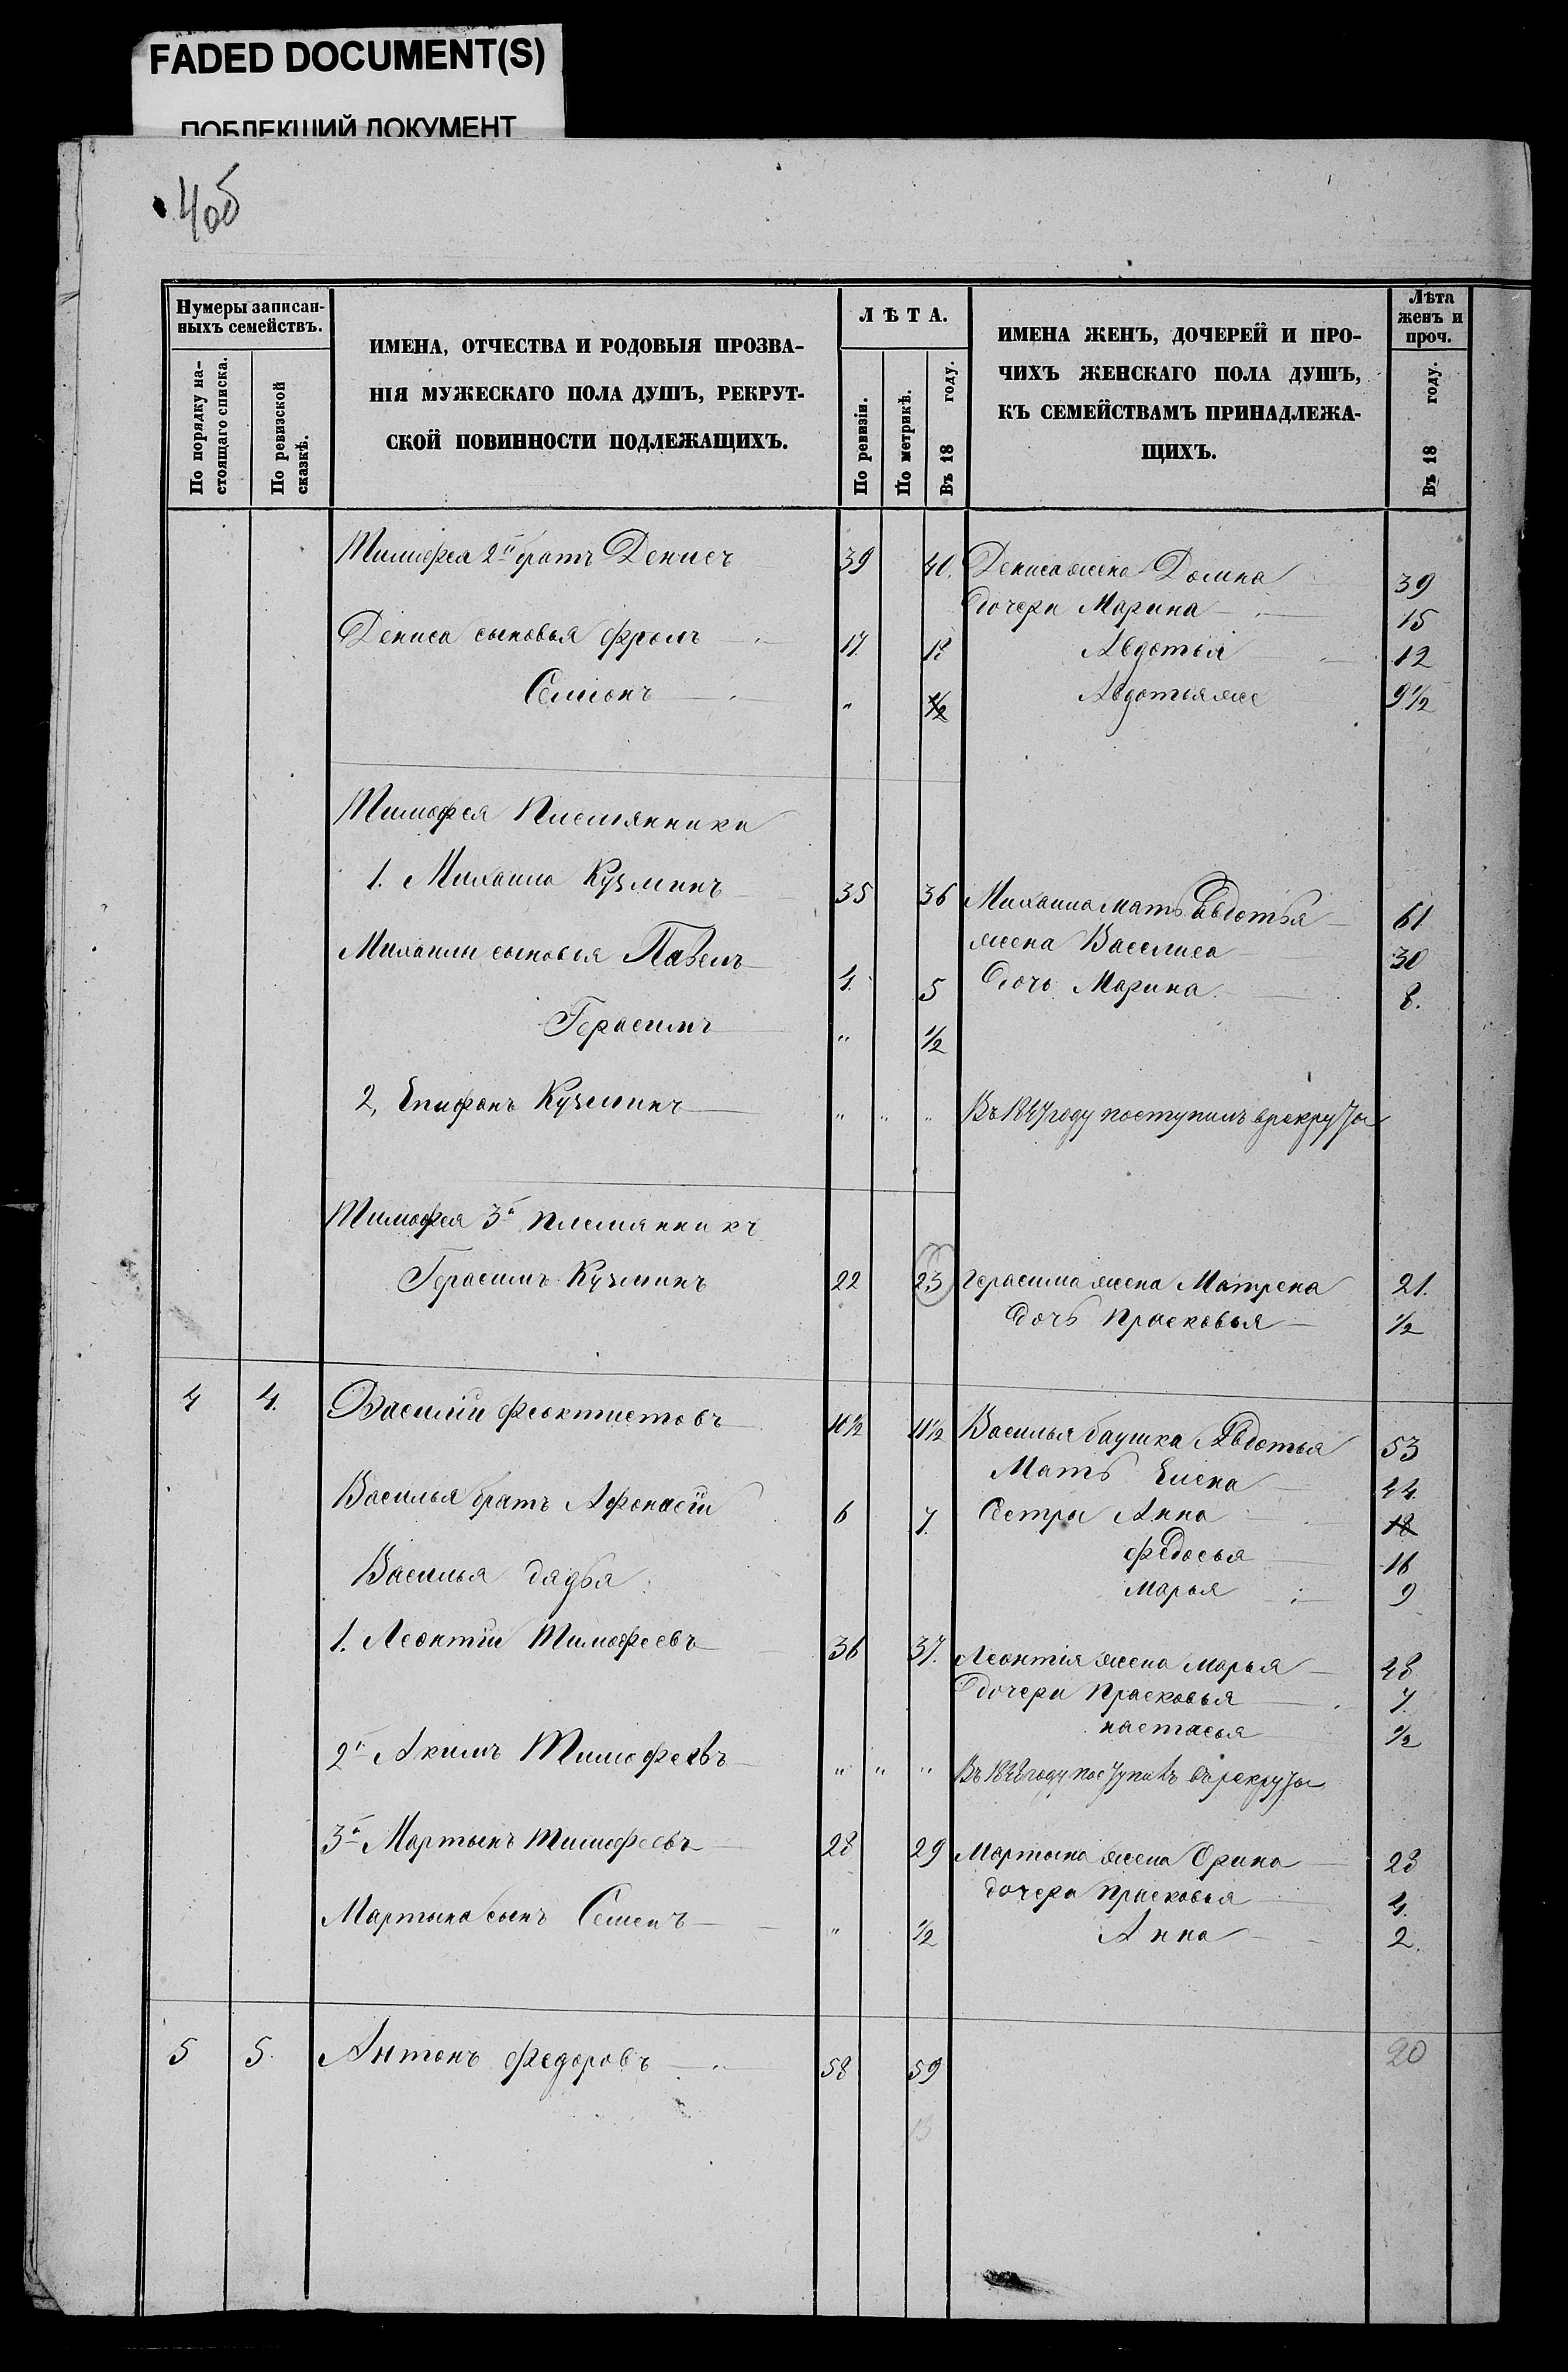 FADED DOCUMENT(S)
ПОБЛЕКШИЙ ДОКУМЕНТ
4об
Нумеры записан-
ныхъ семействъ.
По порядку на-
стоящаго списка.
По ревизской
сказкѣ.
ИМЕНА, ОТЧЕСТВА И РОДОВЫЯ ПРОЗВА-
НІЯ МУЖЕСКАГО ПОЛА ДУШЪ, РЕКРУТ-
СКОЙ ПОВИННОСТИ ПОДЛЕЖАЩИХЪ.
ЛѢТА.
По ревизіи.
По метрикѣ.
Въ 18 году.
ИМЕНА ЖЕНЪ, ДОЧЕРЕЙ И ПРО-
ЧИХЪ ЖЕНСКАГО ПОЛА ДУШЪ,
КЪ СЕМЕЙСТВАМЪ ПРИНАДЛЕЖА-
ЩИХЪ.
Лѣта
женъ и
проч.
Въ 18 году.
Тимофея 2й братъ Денисъ 39 40. Дениса жена Домна 39
дочери Марина 15
Дениса сыновья Фролъ 17. 18 Авдотья 12
Семіонъ " 1/2 Авдотья же 9 1/2
Тимофея Племянники
1. Михаила Кузминъ 35 36 Михаила мать Авдотья 61
жена Василиса 30
Михаилы сыновья Павелъ 4. 5 дочь Марина 8.
Герасимъ " 1/2
2, Епифанъ Кузминъ " " " Въ 1847 году поступилъ врекруты
Тимофея 3й племянникъ
Герасимъ Кузминъ 22 23 Герасима жена Матрена 21.
дочь Прасковья 1/2
4 4. Василій Феоктистовъ 10 1/2 11 1/2 Василья баушка Авдотья 53
Мать Елена 44.
Василья братъ Афонасій 6 7. Сестры Анна 18
Федосья 16
Василья дядья: Марья 9
1. Леонтій Тимофеевъ 36 37. Леонтія жена Марья 48
дочери Прасковья 7.
настасья 1/2
2й Акимъ Тимофеевъ " " " Въ 1848 году поступилъ въ рекруты
3й Мартынъ Тимофеевъ 28 29 Мартына жена Орина 28
дочери Прасковья 4.
Мартына сынъ Семенъ " 1/2 Анна 2.
5 5. Антонъ Федоровъ 58 59
20
13